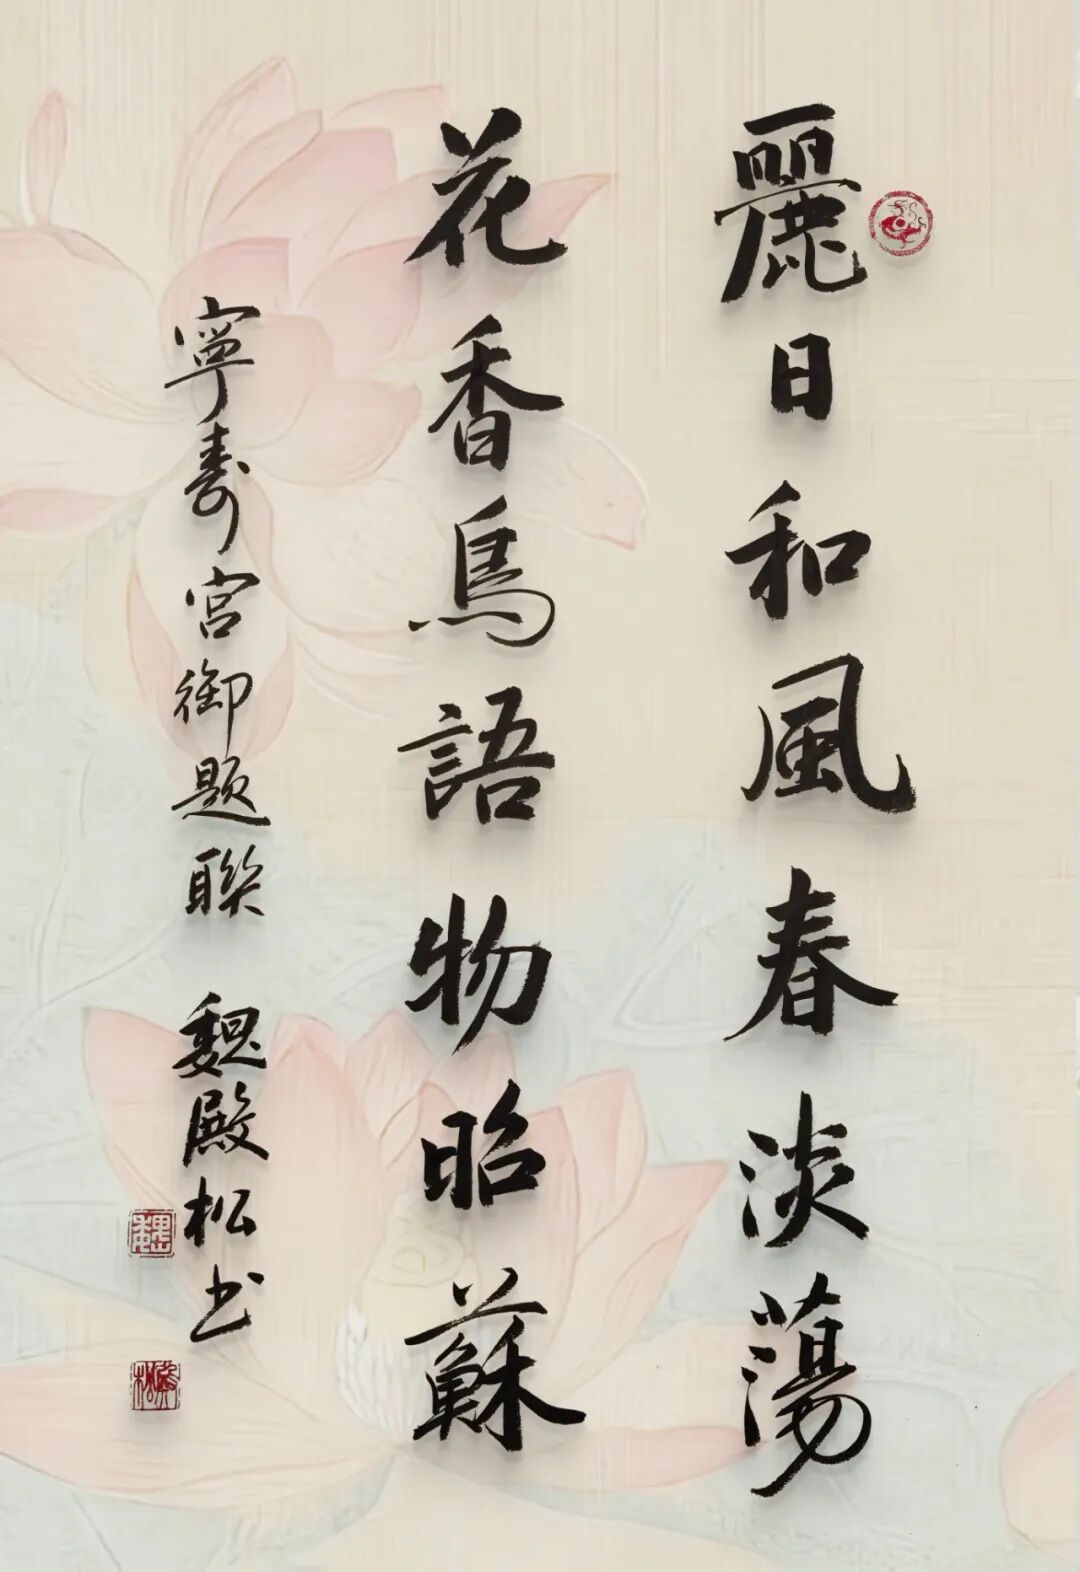 麗日和風春淡蕩
花香鳥語物昭蘇
寧壽宮御题聯 魏殿松书
魏
殿松